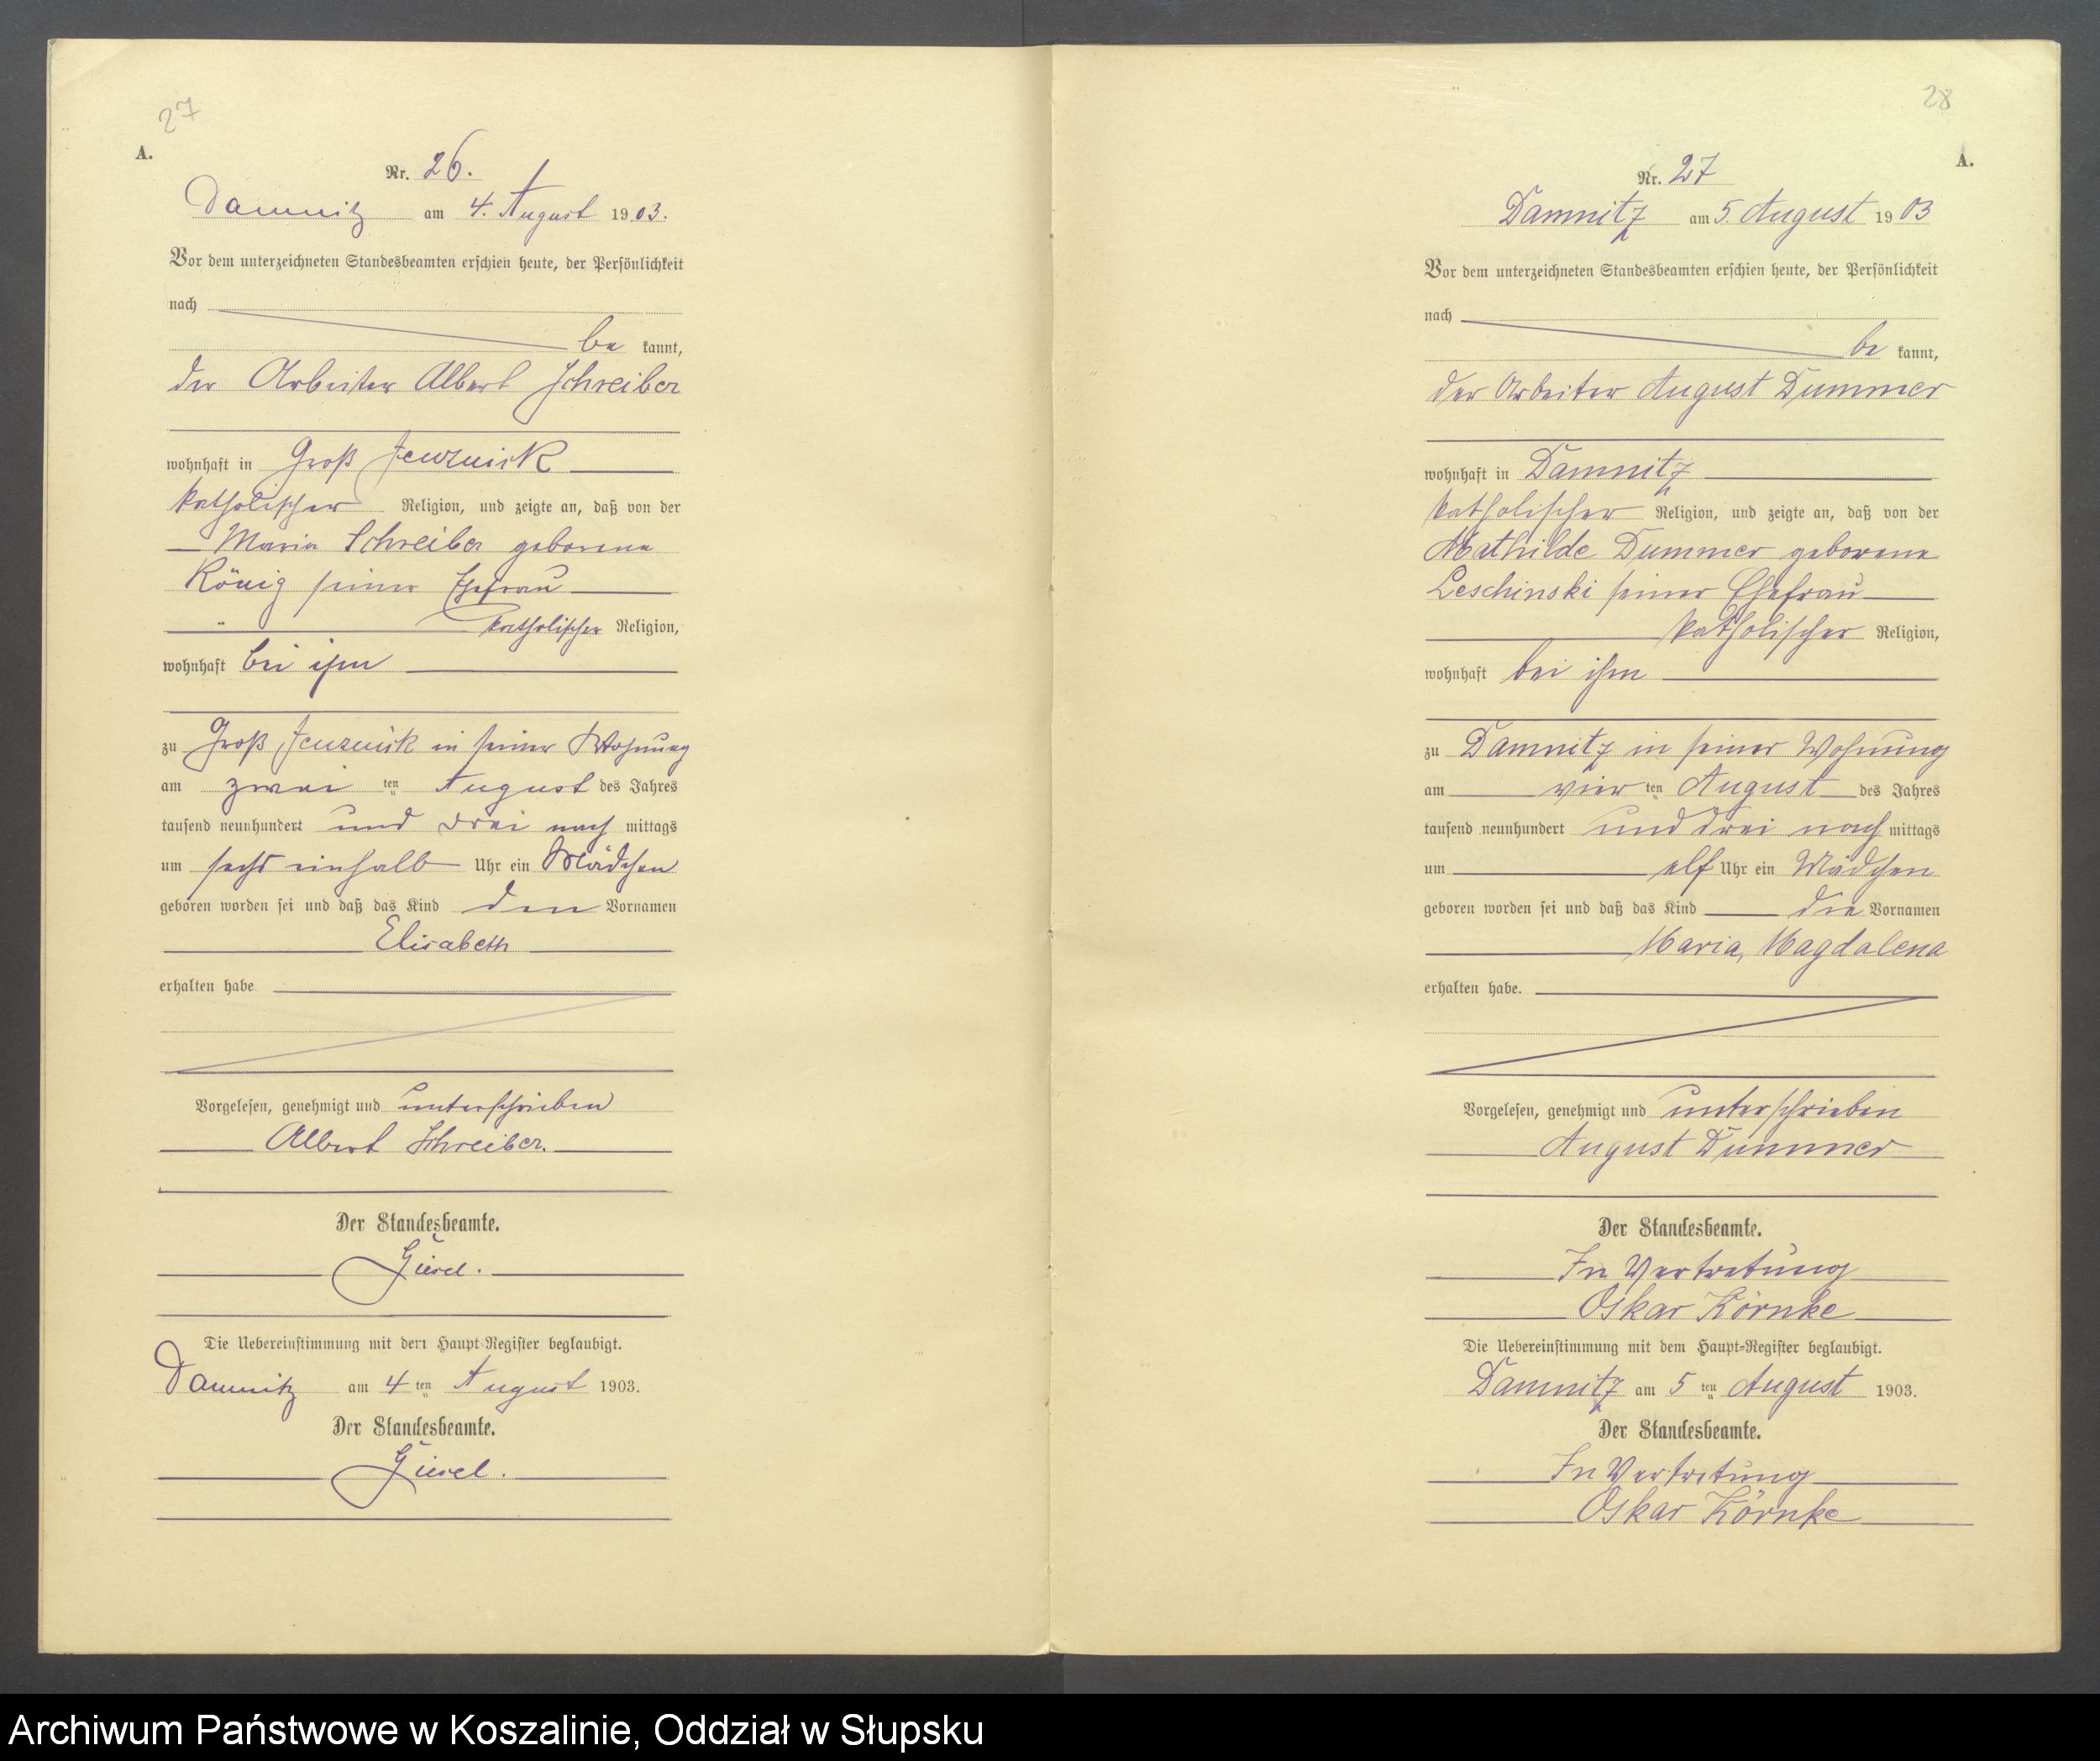 27
A.
Nr. 26.
Damnitz am 4. August 1903.
Vor dem unterzeichneten Standesbeamten erschien heute, der Persönlichkeit
nach
be kannt,
der Arbeiter Albert Schreiber
wohnhaft in Groß Jenznick
katholischer Religion, und zeigte an, daß von der
Maria Schreiber geborene
König seiner Ehefrau
katholischer Religion,
wohnhaft bei ihm
zu Groß Jenznick in seiner Wohnung
am zwei ten August des Jahres
tausend neunhundert und drei nach mittags
um sechs einhalb Uhr ein Mädchen
geboren worden sei und daß das Kind den Vornamen
Elisabeth
erhalten habe.
Vorgelesen, genehmigt und unterschrieben
Albert Schreiber.
Der Standesbeamte.
Giesel.
Die Uebereinstimmung mit dem Haupt-Register beglaubigt.
Damnitz am 4 ten August 1903.
Der Standesbeamte.
Giesel.
28
A.
Nr. 27
Damnitz am 5. August 1903
Vor dem unterzeichneten Standesbeamten erschien heute, der Persönlichkeit
nach
be kannt,
der Arbeiter August Dummer
wohnhaft in Damnitz
katholischer Religion, und zeigte an, daß von der
Mathilde Dummer geborene
Leschinski seiner Ehefrau
katholischer Religion,
wohnhaft bei ihm
zu Damnitz in seiner Wohnung
am vier ten August des Jahres
tausend neunhundert und drei nach mittags
um elf Uhr ein Mädchen
geboren worden sei und daß das Kind die Vornamen
Maria, Magdalena
erhalten habe.
Vorgelesen, genehmigt und unterschrieben
August Dummer
Der Standesbeamte.
In Vertretung
Oskar Körnke
Die Uebereinstimmung mit dem Haupt-Register beglaubigt.
Damnitz am 5 ten August 1903.
Der Standesbeamte.
In Vertretung
Oskar Körnke
Archiwum Państwowe w Koszalinie, Oddział w Słupsku